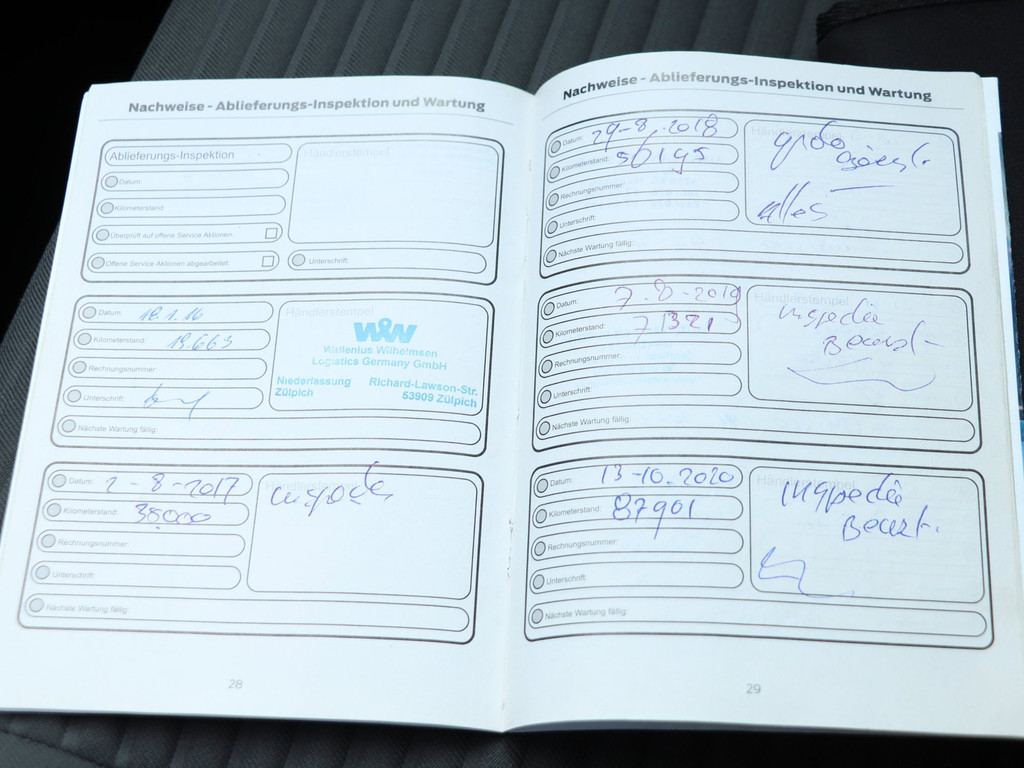 Nachweise - Ablieferungs-Inspektion und Wartung
Ablieferungs-Inspektion
Händlerstempel
Datum:
Kilometerstand:
Überprüft auf offene Service Aktionen:
Offene Service Aktionen abgearbeitet:
Unterschrift:
Datum: 19.1.16
Händlerstempel
Kilometerstand: 19.663
W&W
Wallenius Wilhelmsen
Logistics Germany GmbH
Rechnungsnummer:
Niederlassung Richard-Lawson-Str.
Zülpich 53909 Zülpich
Unterschrift:
Nächste Wartung fällig:
Datum: 2-8-2017
Händlerstempel
inspectie
Kilometerstand: 38000
Rechnungsnummer:
Unterschrift:
Nächste Wartung fällig:
28
Nachweise - Ablieferungs-Inspektion und Wartung
Datum: 29-8-2018
Kilometerstand: 56195
Rechnungsnummer:
Unterschrift:
alles
Nächste Wartung fällig:
Datum: 7-8-2019
Händlerstempel
inspectie
Kilometerstand: 71321
Beurt
Rechnungsnummer:
Unterschrift:
Nächste Wartung fällig:
Datum: 13-10-2020
Händlerstempel
inspectie
Kilometerstand: 87901
Beurt.
Rechnungsnummer:
Unterschrift:
Nächste Wartung fällig:
29